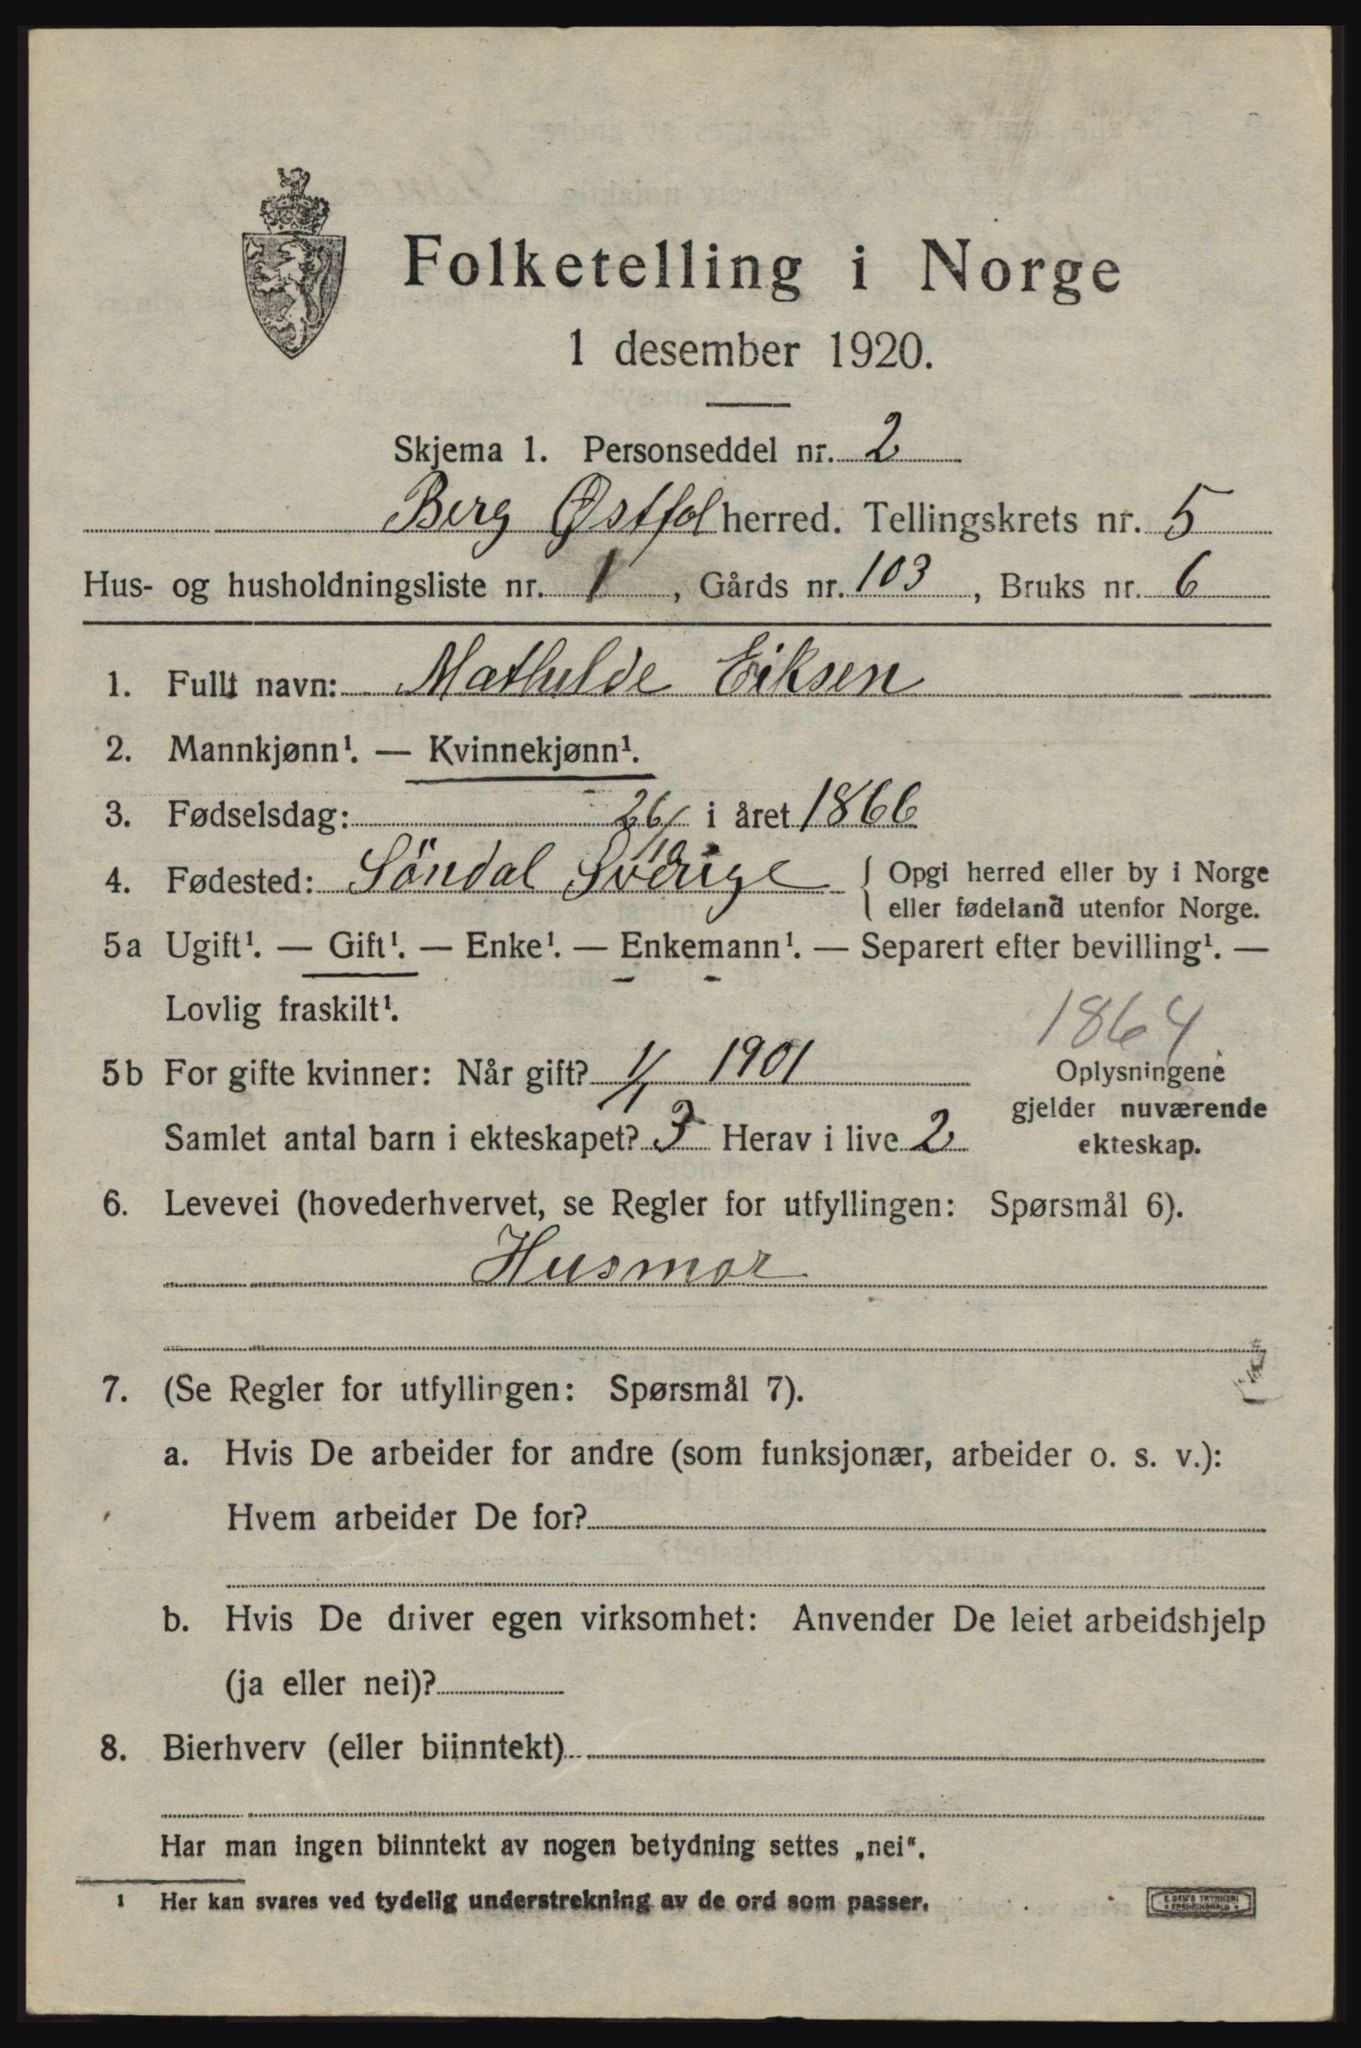 Folketelling i Norge
1 desember 1920.
Skjema 1. Personseddel nr. 2
Berg Østfol herred. Tellingskrets nr. 5
Hus- og husholdningsliste nr. 1, Gårds nr. 103, Bruks nr. 6
1. Fullt navn: Mathilde Eiksen
2. Mannkjønn¹. — Kvinnekjønn¹.
3. Fødselsdag: 26/10 i året 1866
4. Fødested: Söndal Sverige { Opgi herred eller by i Norge
eller fødeland utenfor Norge.
5a Ugift¹. — Gift¹. — Enke¹. — Enkemann¹. — Separert efter bevilling¹. —
Lovlig fraskilt¹.
1864
5b For gifte kvinner: Når gift? 1/1 1901
Oplysningene
gjelder nuværende
ekteskap.
Samlet antal barn i ekteskapet? 3 Herav i live 2
6. Levevei (hovederhvervet, se Regler for utfyllingen: Spørsmål 6).
Husmor
7. (Se Regler for utfyllingen: Spørsmål 7).
a. Hvis De arbeider for andre (som funksjonær, arbeider o. s. v.):
Hvem arbeider De for?
b. Hvis De driver egen virksomhet: Anvender De leiet arbeidshjelp
(ja eller nei)?
8. Bierhverv (eller biinntekt)
Har man ingen biinntekt av nogen betydning settes „nei".
¹ Her kan svares ved tydelig understrekning av de ord som passer.